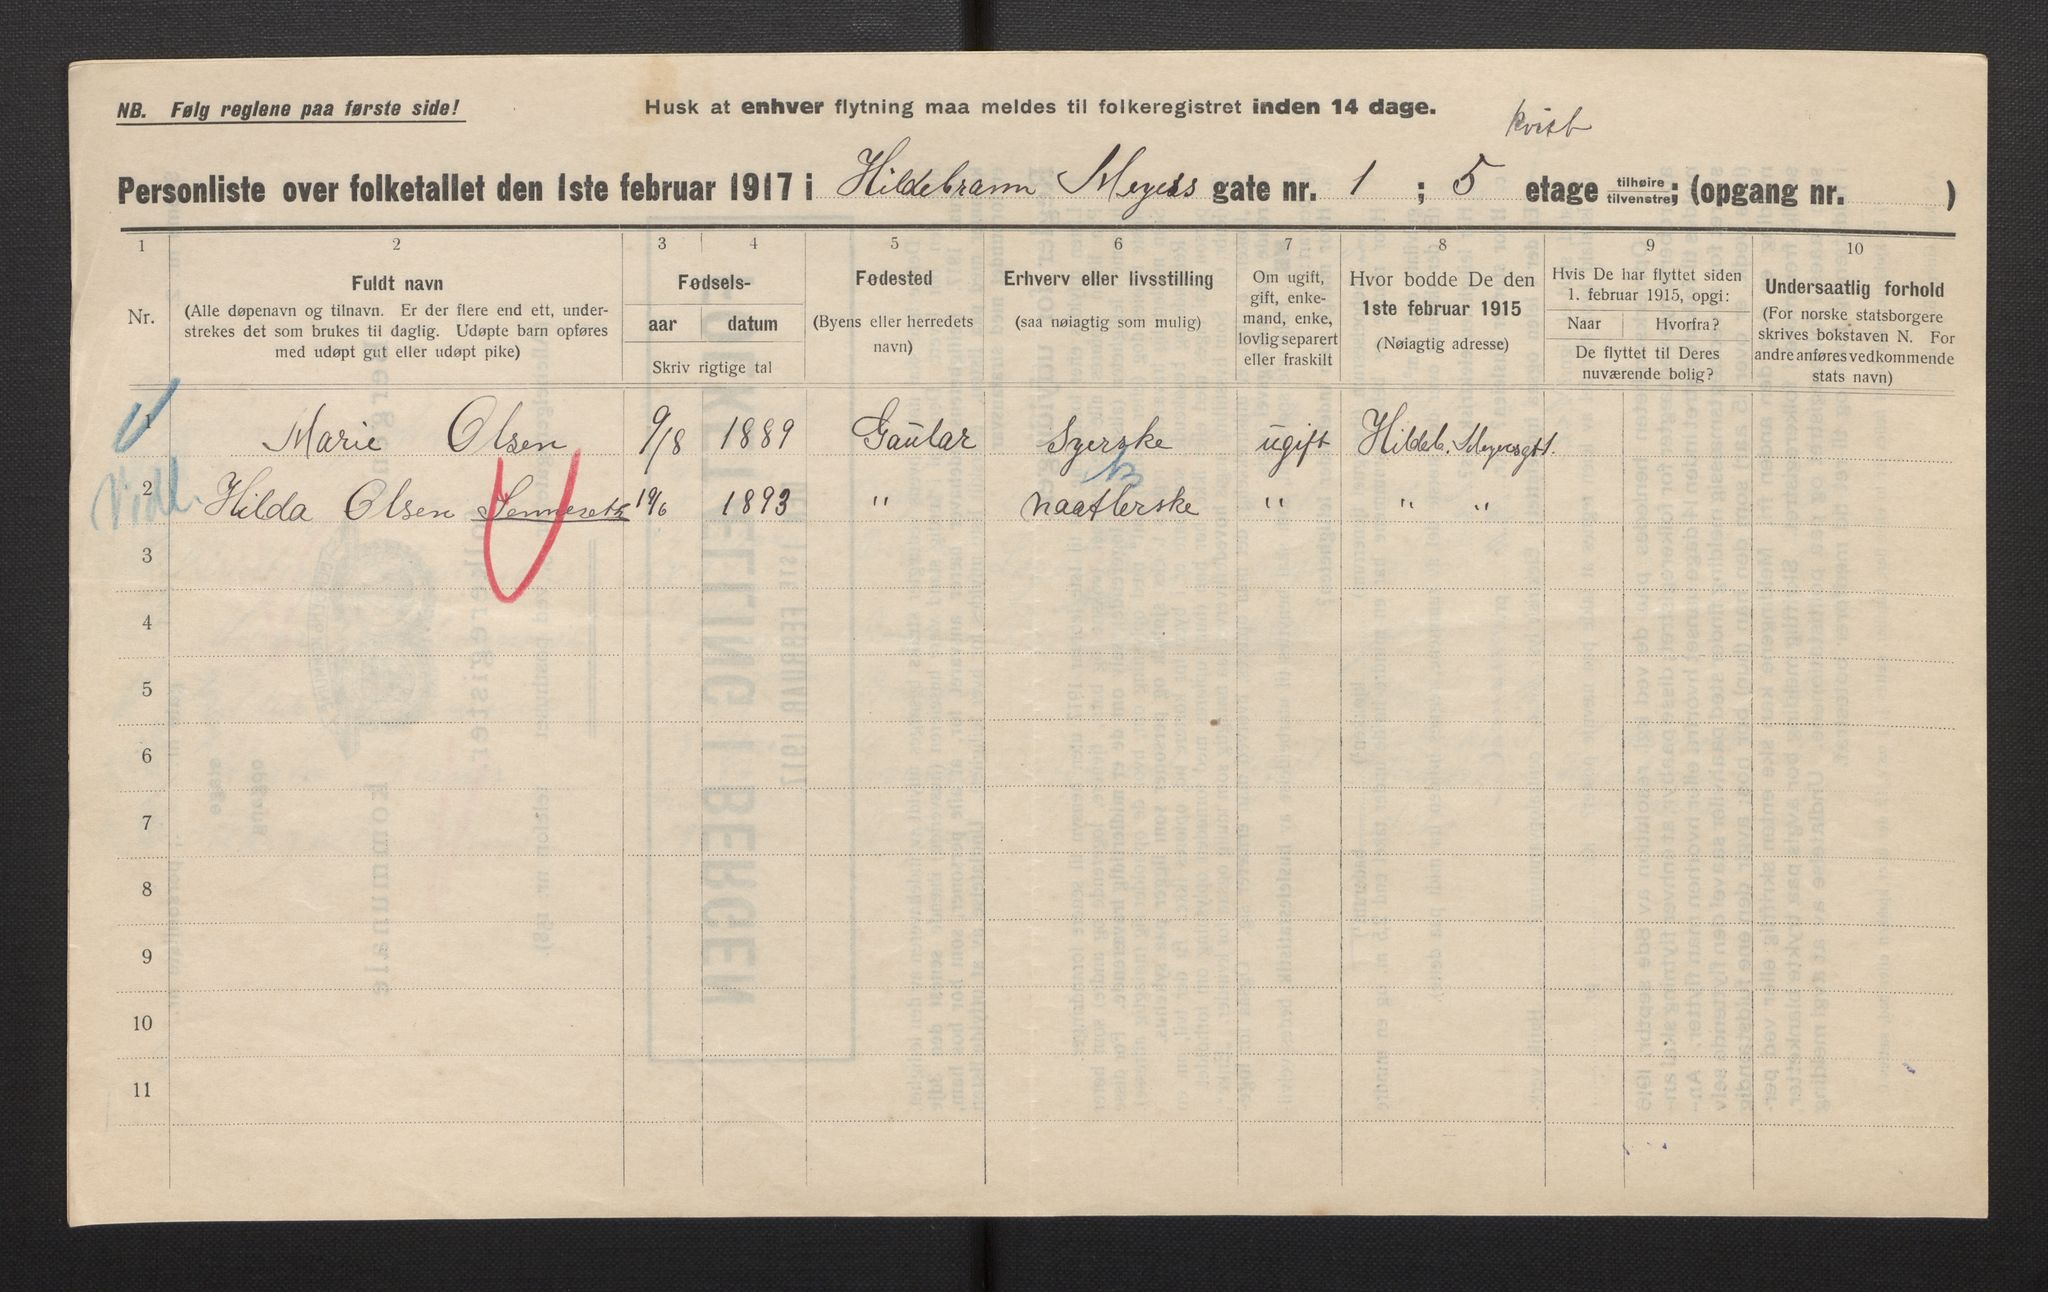 NB. Følg reglene paa første side!
Husk at enhver flytning maa meldes til folkeregistret inden 14 dage.
kvist
Personliste over folketallet den 1ste februar 1917 i Hildebrann Meyers gate nr. 1 ; 5 etage tilhøire/tilvenstre; (opgang nr. )
1 2 3 4 5 6 7 8 9 10
Nr.
Fuldt navn
(Alle døpenavn og tilnavn. Er der flere end ett, under-
strekes det som brukes til daglig. Udøpte barn opføres
med udøpt gut eller udøpt pike)
Fødsels-
aar datum
Skriv rigtige tal
Fødested
(Byens eller herredets
navn)
Erhverv eller livsstilling
(saa nøiagtig som mulig)
Om ugift,
gift, enke-
mand, enke,
lovlig separert
eller fraskilt
Hvor bodde De den
1ste februar 1915
(Nøiagtig adresse)
Hvis De har flyttet siden
1. februar 1915, opgi:
Naar Hvorfra?
De flyttet til Deres
nuværende bolig?
Undersaatlig forhold
(For norske statsborgere
skrives bokstaven N. For
andre anføres vedkommende
stats navn)
1 Marie Olsen 9/8 1889 Gaular Syerske ugift Hildeb. Meyersgt 1.
2 Hilda Olsen 19/6 1893 " naatlerske " " "
3
4
5
6
7
8
9
10
11